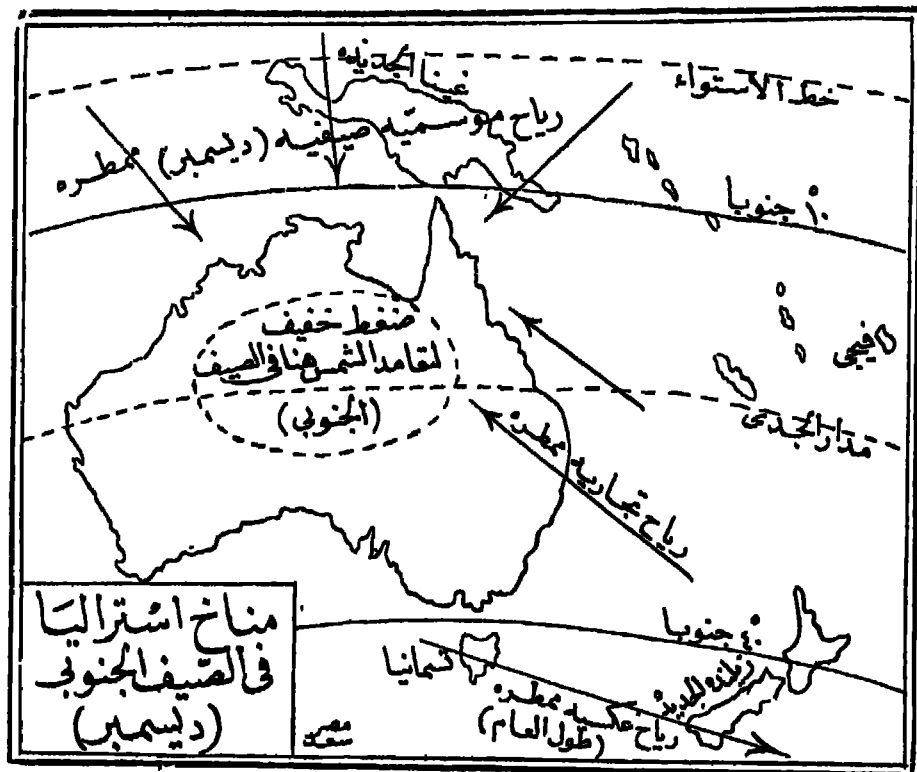 خط الاستواء
غينيا الجديده
رياح موسميّه صيفيه (ديسمبر) ممطره
١٠° جنوبا
ضغط خفيف
لتعامد الشمس هنا فى الصيف
(الجنوبي)
فيجي
مدار الجدى
رياح تجاريه ممطره
٤٠° جنوبا
زيلنده الجديده
تسمانيا
رياح عكسيه ممطره
(طول العام)
مناخ استراليا
فى الصّيف الجنوبى
(ديسمبر)